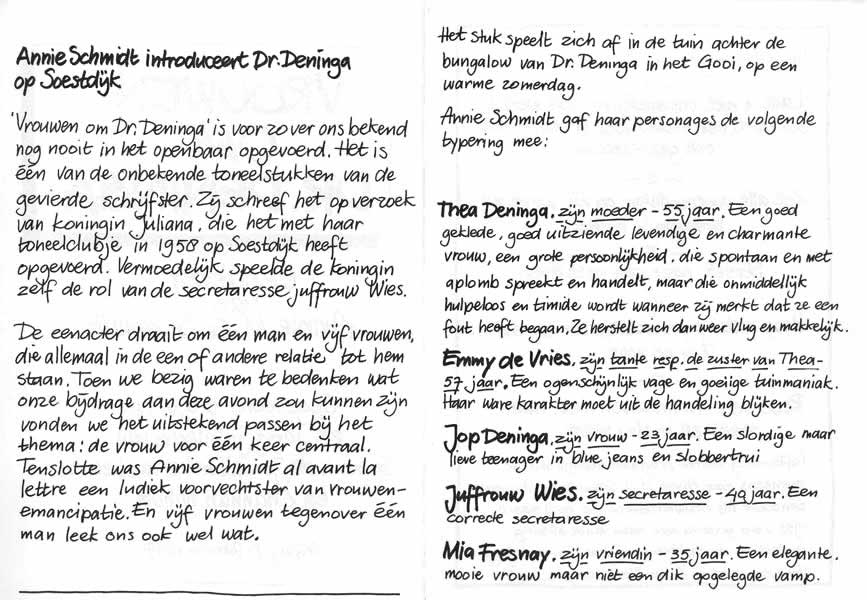 Annie Schmidt introduceert Dr. Deninga
op Soestdijk
'Vrouwen om Dr. Deninga' is voor zover ons bekend
nog nooit in het openbaar opgevoerd. Het is
één van de onbekende toneelstukken van de
gevierde schrijfster. Zij schreef het op verzoek
van koningin Juliana, die het met haar
toneelclubje in 1958 op Soestdijk heeft
opgevoerd. Vermoedelijk speelde de koningin
zelf de rol van de secretaresse juffrouw Wies.
De eenacter draait om één man en vijf vrouwen,
die allemaal in de een of andere relatie tot hem
staan. Toen we bezig waren te bedenken wat
onze bijdrage aan deze avond zou kunnen zijn
vonden we het uitstekend passen bij het
thema: de vrouw voor één keer centraal.
Tenslotte was Annie Schmidt al avant la
lettre een ludiek voorvechtster van vrouwen-
emancipatie. En vijf vrouwen tegenover één
man leek ons ook wel wat.
Het stuk speelt zich af in de tuin achter de
bungalow van Dr. Deninga in het Gooi, op een
warme zomerdag.
Annie Schmidt gaf haar personages de volgende
typering mee:
Thea Deninga, zijn moeder - 55 jaar. Een goed
geklede, goed uitziende levendige en charmante
vrouw, een grote persoonlijkheid, die spontaan en met
aplomb spreekt en handelt, maar die onmiddellijk
hulpeloos en timide wordt wanneer zij merkt dat ze een
fout heeft begaan. Ze herstelt zich dan weer vlug en makkelijk.
Emmy de Vries, zijn tante resp. de zuster van Thea-
57 jaar. Een ogenschijnlijk vage en goeiige tuinmaniak.
Haar ware karakter moet uit de handeling blijken.
Jop Deninga, zijn vrouw - 23 jaar. Een slordige maar
lieve teenager in blue jeans en slobbertrui
Juffrouw Wies, zijn secretaresse - 49 jaar. Een
correcte secretaresse
Mia Fresnay, zijn vriendin - 35 jaar. Een elegante,
mooie vrouw maar niet een dik opgelegde vamp.